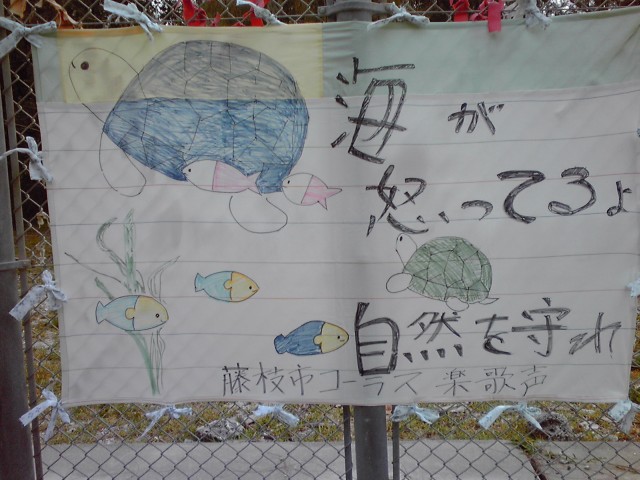 海が
怒ってるよ
自然を守れ
藤枝市コーラス 楽歌声